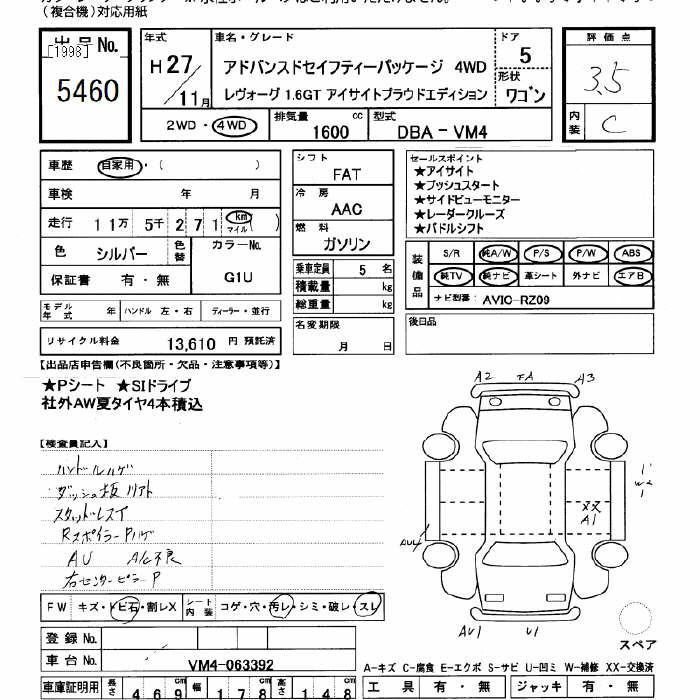 （複合機）対応用紙
出品No.
[1998]
5460
年式
H27/11月
車名・グレード
アドバンスドセイフティーパッケージ 4WD
レヴォーグ 1.6GT アイサイトプラウドエディション
ドア
5
形状
ワゴン
2WD・4WD
排気量
1600 cc
型式
DBA-VM4
評価点
3.5
内装
C
車歴 自家用・（ ）
車検 年 月
走行 11万5千271 km マイル（ ）
色 シルバー 色替
カラーNo.
G1U
保証書 有・無
シフト
FAT
冷房
AAC
燃料
ガソリン
乗車定員 5 名
積載量 kg
総重量 kg
セールスポイント
★アイサイト
★プッシュスタート
★サイドビューモニター
★レーダークルーズ
★パドルシフト
装備品
S/R 純A/W P/S P/W ABS
純TV 純ナビ 革シート 外ナビ エアB
ナビ型番： AVIC-RZ09
モデル年式 年 ハンドル 左・右 ディーラー・並行
リサイクル料金 13,610 円 預託済
名変期限
月 日
後日品
【出品店申告欄(不良箇所・欠品・注意事項等)】
★Pシート ★SIドライブ
社外AW夏タイヤ4本積込
【検査員記入】
ハンドルハゲ
ダッシュ板リアト
スタッドレス
RスポイラーPハゲ
AU A/C不良
右センターピラーP
A2 FA A3
XX
A1
AU4
AU1 U1
スペア
FW キズ・トビ石・割レX
シート内装 コゲ・穴・汚レ・シミ・破レ・スレ
登録No.
車台No. VM4-063392
A-キズ C-腐食 E-エクボ S-サビ U-凹ミ W-補修 XX-交換済
車庫証明用 長さ 469cm 幅 178cm 高さ 148cm
工具 有・無 ジャッキ 有・無